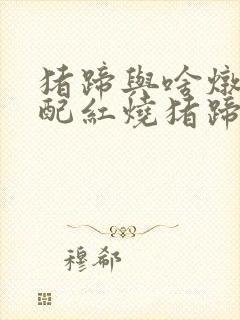 猪蹄與啥燉
配紅燒猪蹄
穆郗